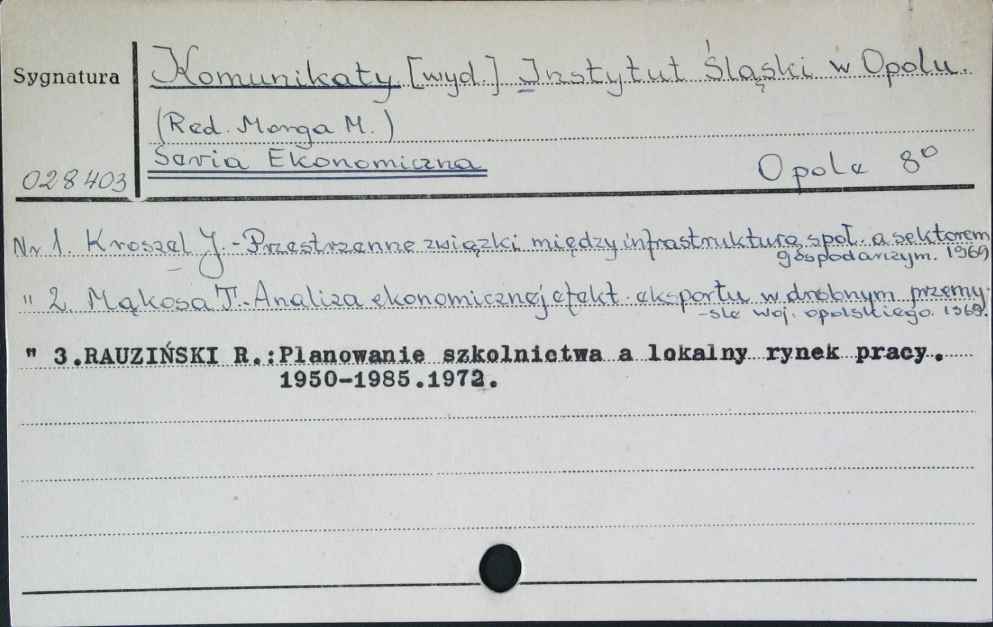 Sygnatura
Komunikaty [wyd.] Instytut Śląski w Opolu.
(Red. Morga M.)
Seria Ekonomiczna
Opole 8°
028403
Nr 1. Kroszel J. - Przestrzenne związki między infrastrukturą społ. a sektorem
gospodarczym. 1969
" 2. Mąkosa T. - Analiza ekonomicznej efekt. eksportu w drobnym przemy-
-śle woj. opolskiego. 1969.
" 3.RAUZIŃSKI R.:Planowanie szkolnictwa a lokalny rynek pracy.
1950-1985.1972.